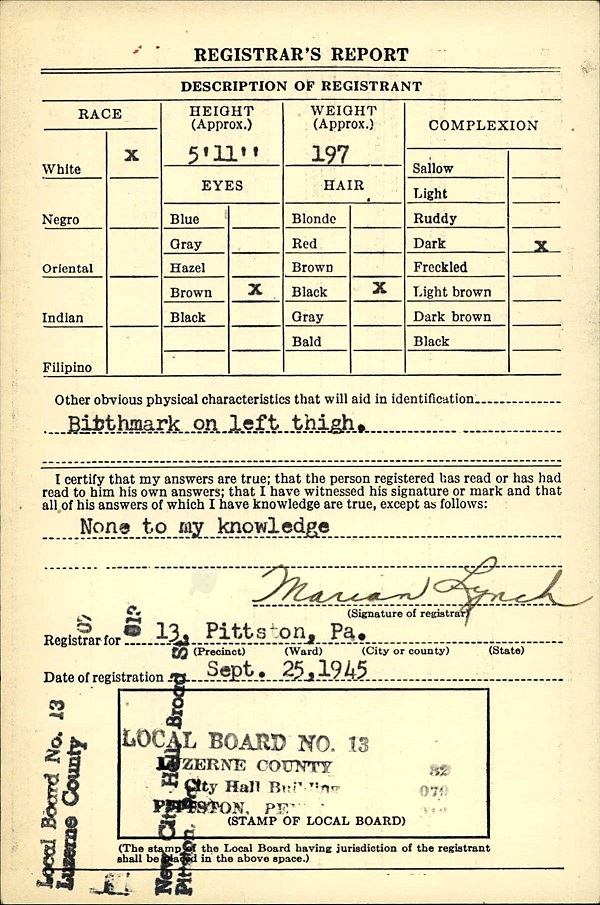 REGISTRAR'S REPORT
DESCRIPTION OF REGISTRANT
RACE
HEIGHT (Approx.)
WEIGHT (Approx.)
COMPLEXION
White X
5'11''
197
EYES
HAIR
Sallow
Light
Negro
Blue
Blonde
Ruddy
Gray
Red
Dark X
Oriental
Hazel
Brown
Freckled
Brown X
Black X
Light brown
Indian
Black
Gray
Dark brown
Bald
Black
Filipino
Other obvious physical characteristics that will aid in identification
Bitthmark on left thigh.
I certify that my answers are true; that the person registered has read or has had
read to him his own answers; that I have witnessed his signature or mark and that
all of his answers of which I have knowledge are true, except as follows:
None to my knowledge
Marian Lynch
(Signature of registrar)
Registrar for 13, Pittston, Pa.
(Precinct) (Ward) (City or county) (State)
Date of registration Sept. 25,1945
LOCAL BOARD NO. 13
LUZERNE COUNTY
City Hall Building
PITTSTON, PE
(STAMP OF LOCAL BOARD)
(The stamp of the Local Board having jurisdiction of the registrant
shall be placed in the above space.)
Local Board No. 13
Luzerne County
New City Hall, Broad St
Pittston, Pa.
82
079